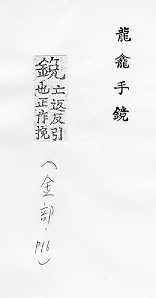 龍龕手鏡
鋔
亡返反引
也正作挽
（金部．P16）